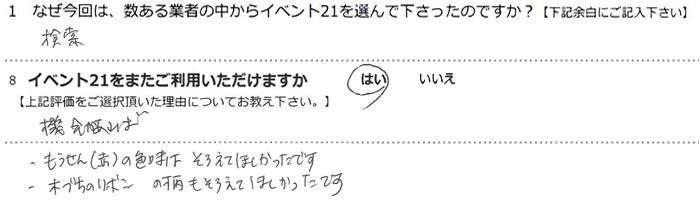 1 なぜ今回は、数ある業者の中からイベント21を選んで下さったのですか？【下記余白にご記入下さい】
検索
8 イベント21をまたご利用いただけますか はい いいえ
【上記評価をご選択頂いた理由についてお教え下さい。】
機会があれば
- もうせん(赤)の色味は そろえてほしかったです
- 木ぶちのリボン の柄もそろえてほしかったです